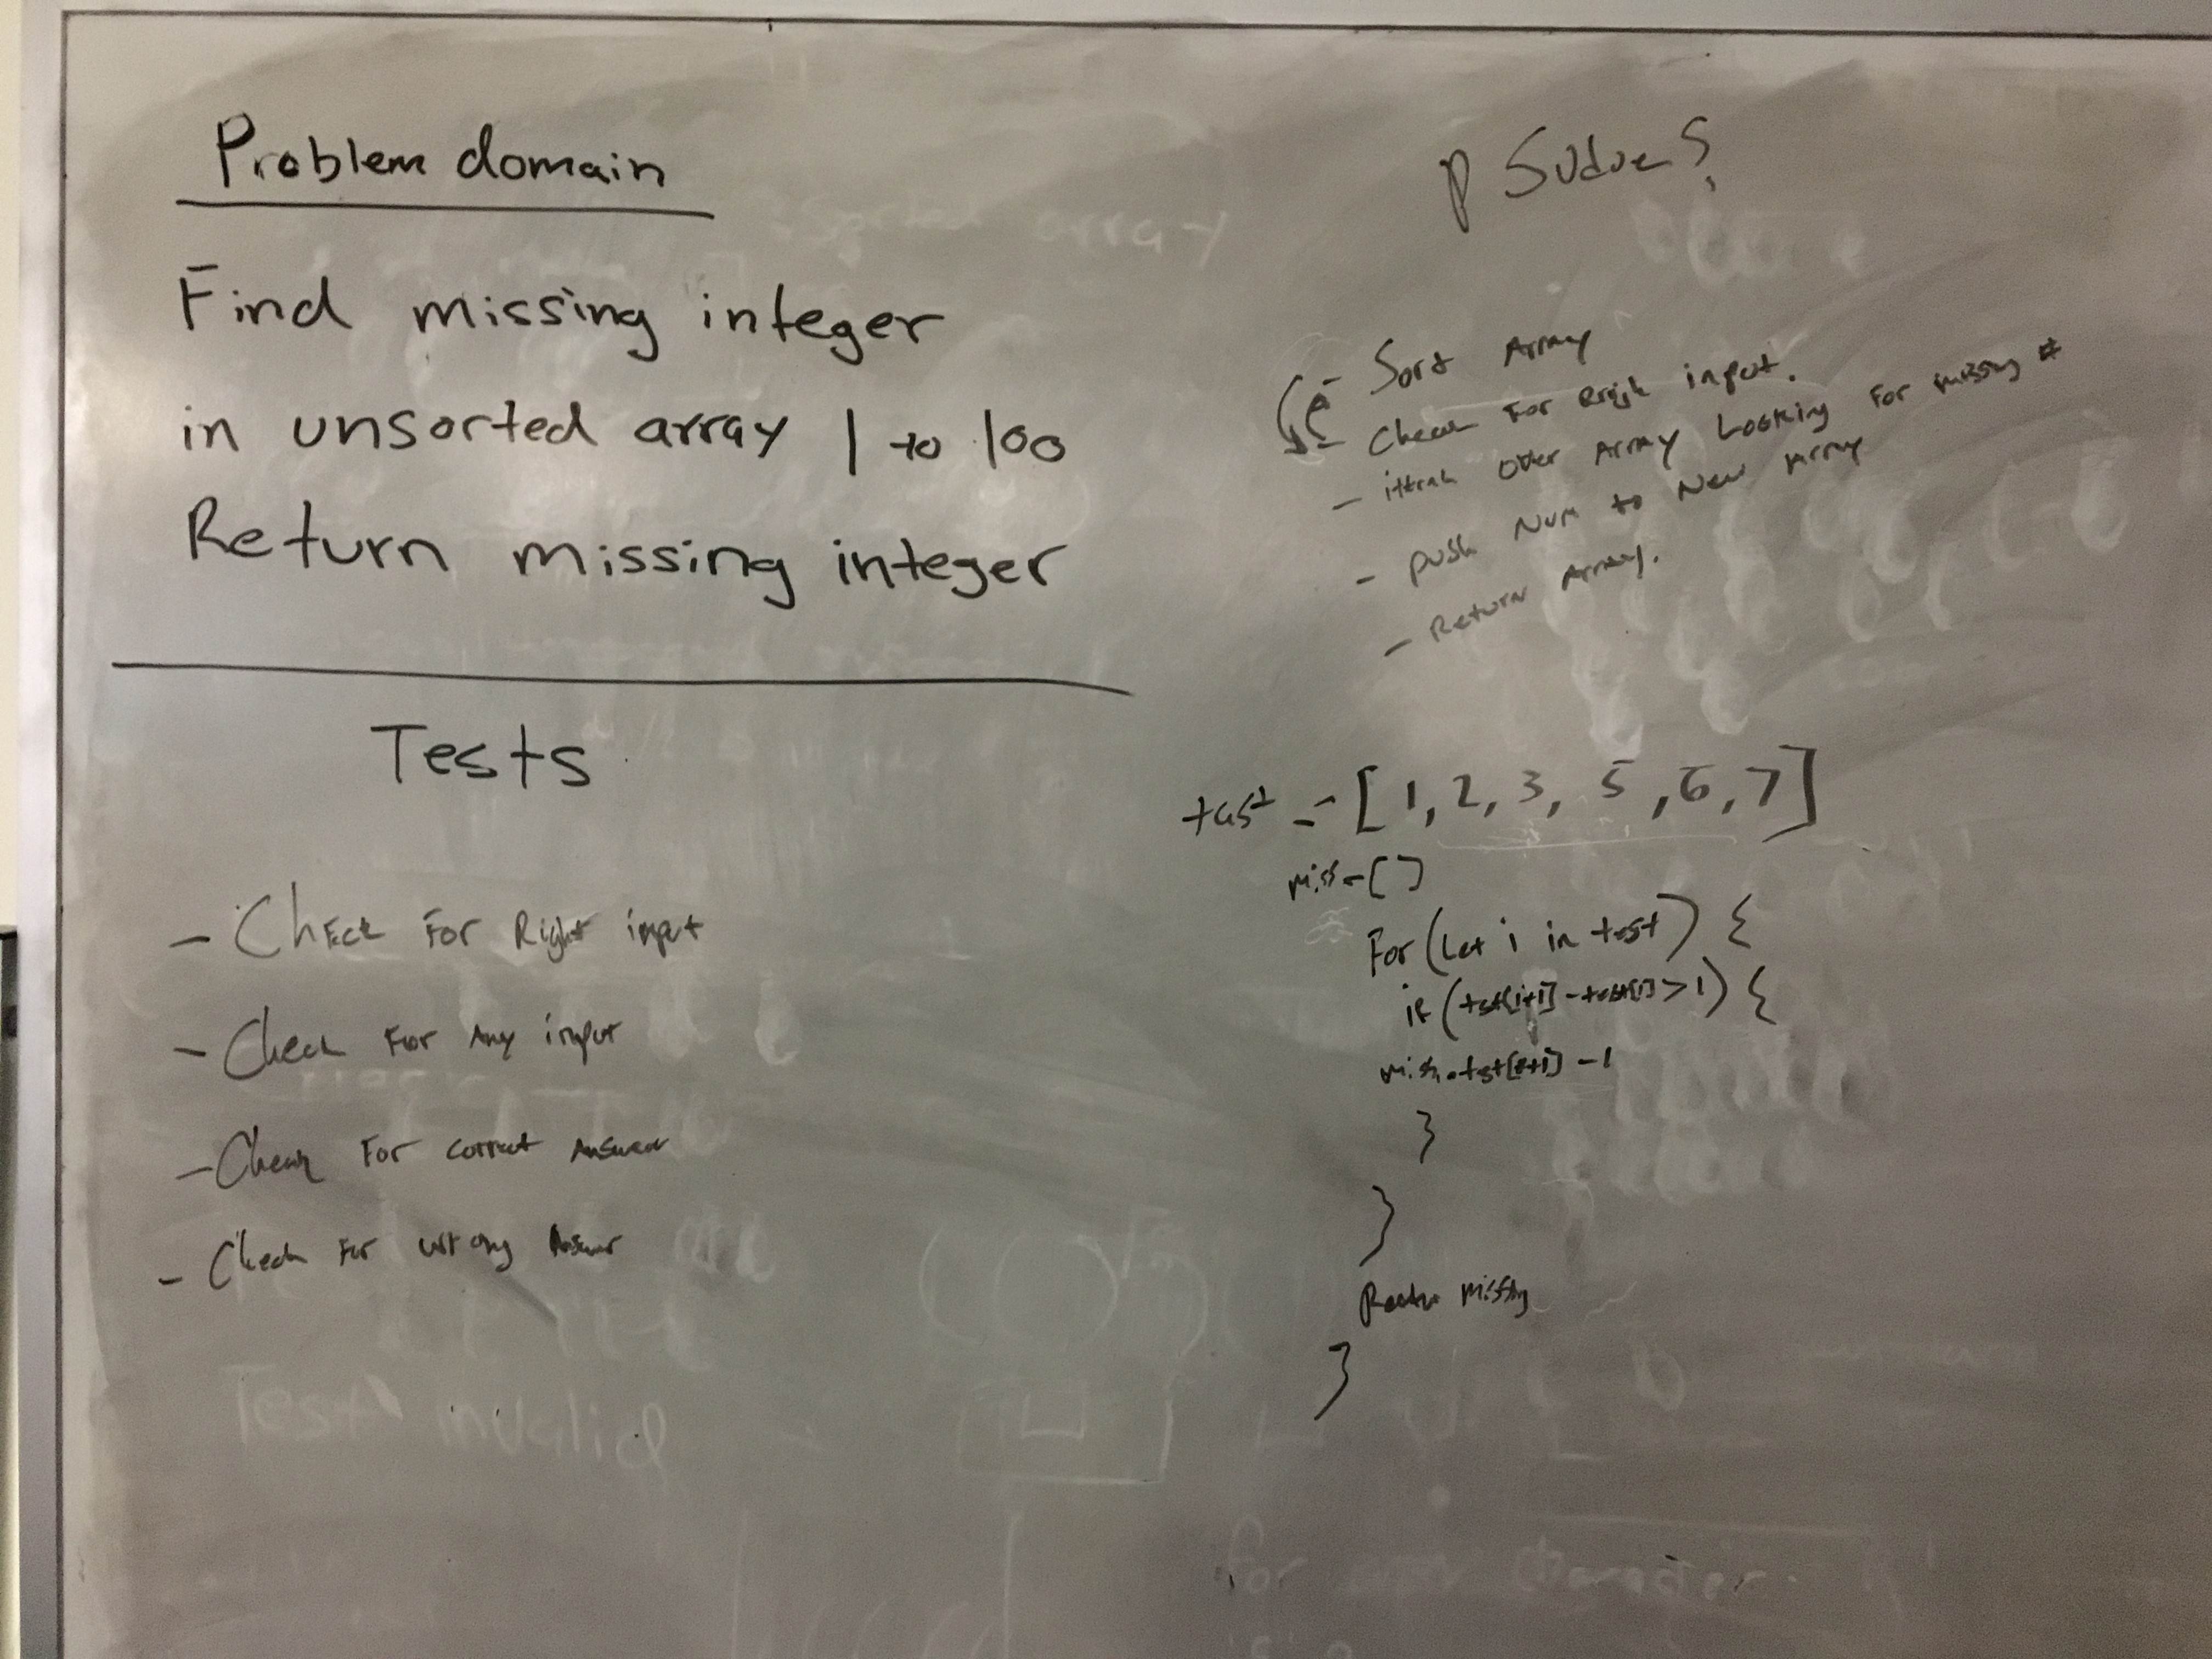 Problem domain
Find missing integer
in unsorted array 1 to 100
Return missing integer
Tests
- Check For Right input
- Check For Any input
- Check For correct Answer
- Check For wrong Answer
Test invalid
sorted array
- Sort Array
- Check For input.
- Over Array Looking For missing #
- push Num to New Array
- Return Array.
test = [1, 2, 3, 5, 6, 7]
miss = []
For (Let i in test) {
if (test[i+1] - test[i] > 1) {
test[i+1] - 1
}
}
Return missing
}
for